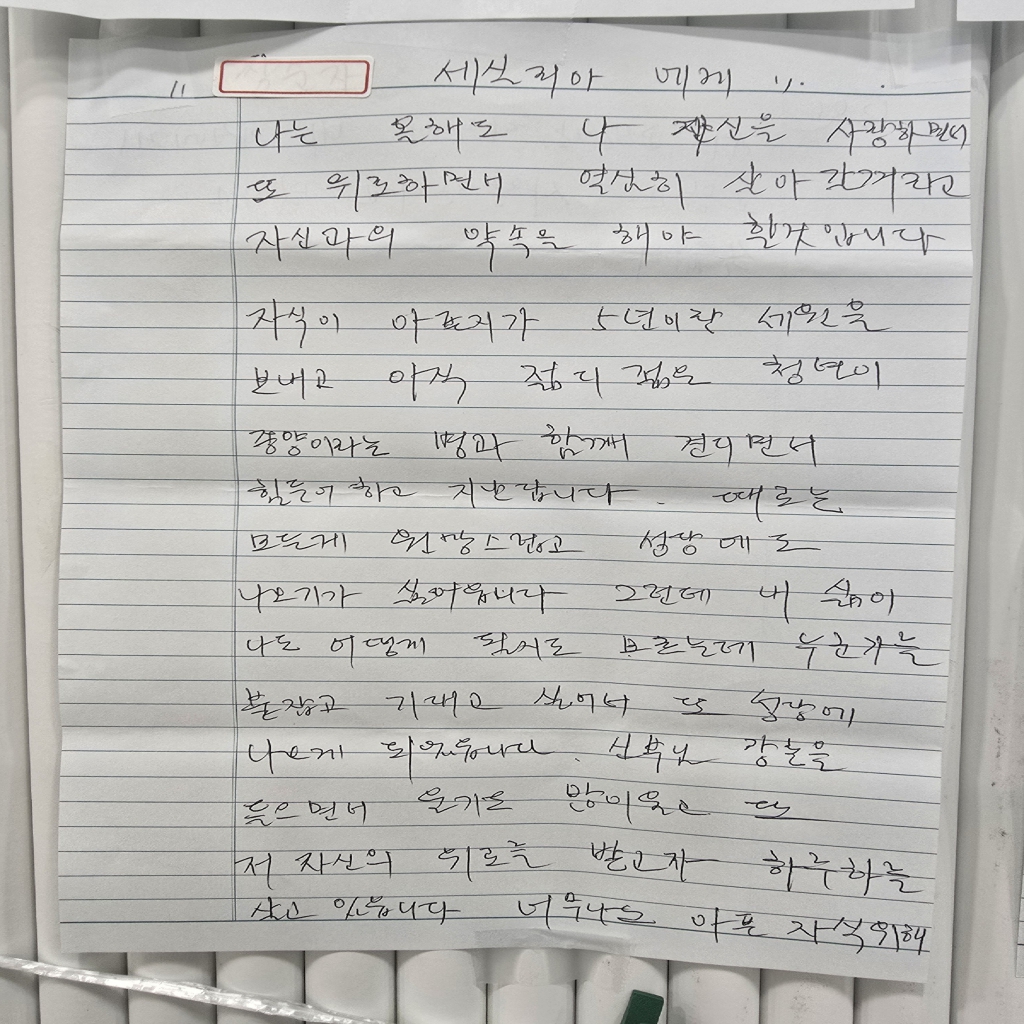 " 세실리아 에게 "
나는 못해도 나 자신을 사랑하면서
또 위로하면서 열심히 살아 갈거라고
자신과의 약속을 해야 할것입니다
자식이 아픈지가 5년이란 세월을
보내고 아직 젊디 젊은 청년이
종양이라는 병과 함께 견디면서
힘들어 하고 지낸답니다. 때로는
모든게 원망스럽고 성당에도
나오기가 싫어웁니다 그런데 내 삶이
나도 어떻게 될지도 모르는데 누군가를
붙잡고 기대고 싶어서 또 성당에
나오게 되었읍니다. 신부님 강론을
들으면서 울기도 많이울고 또
저 자신의 위로를 받고자 하루하를
살고 있읍니다 너무나도 아픈 자식위해